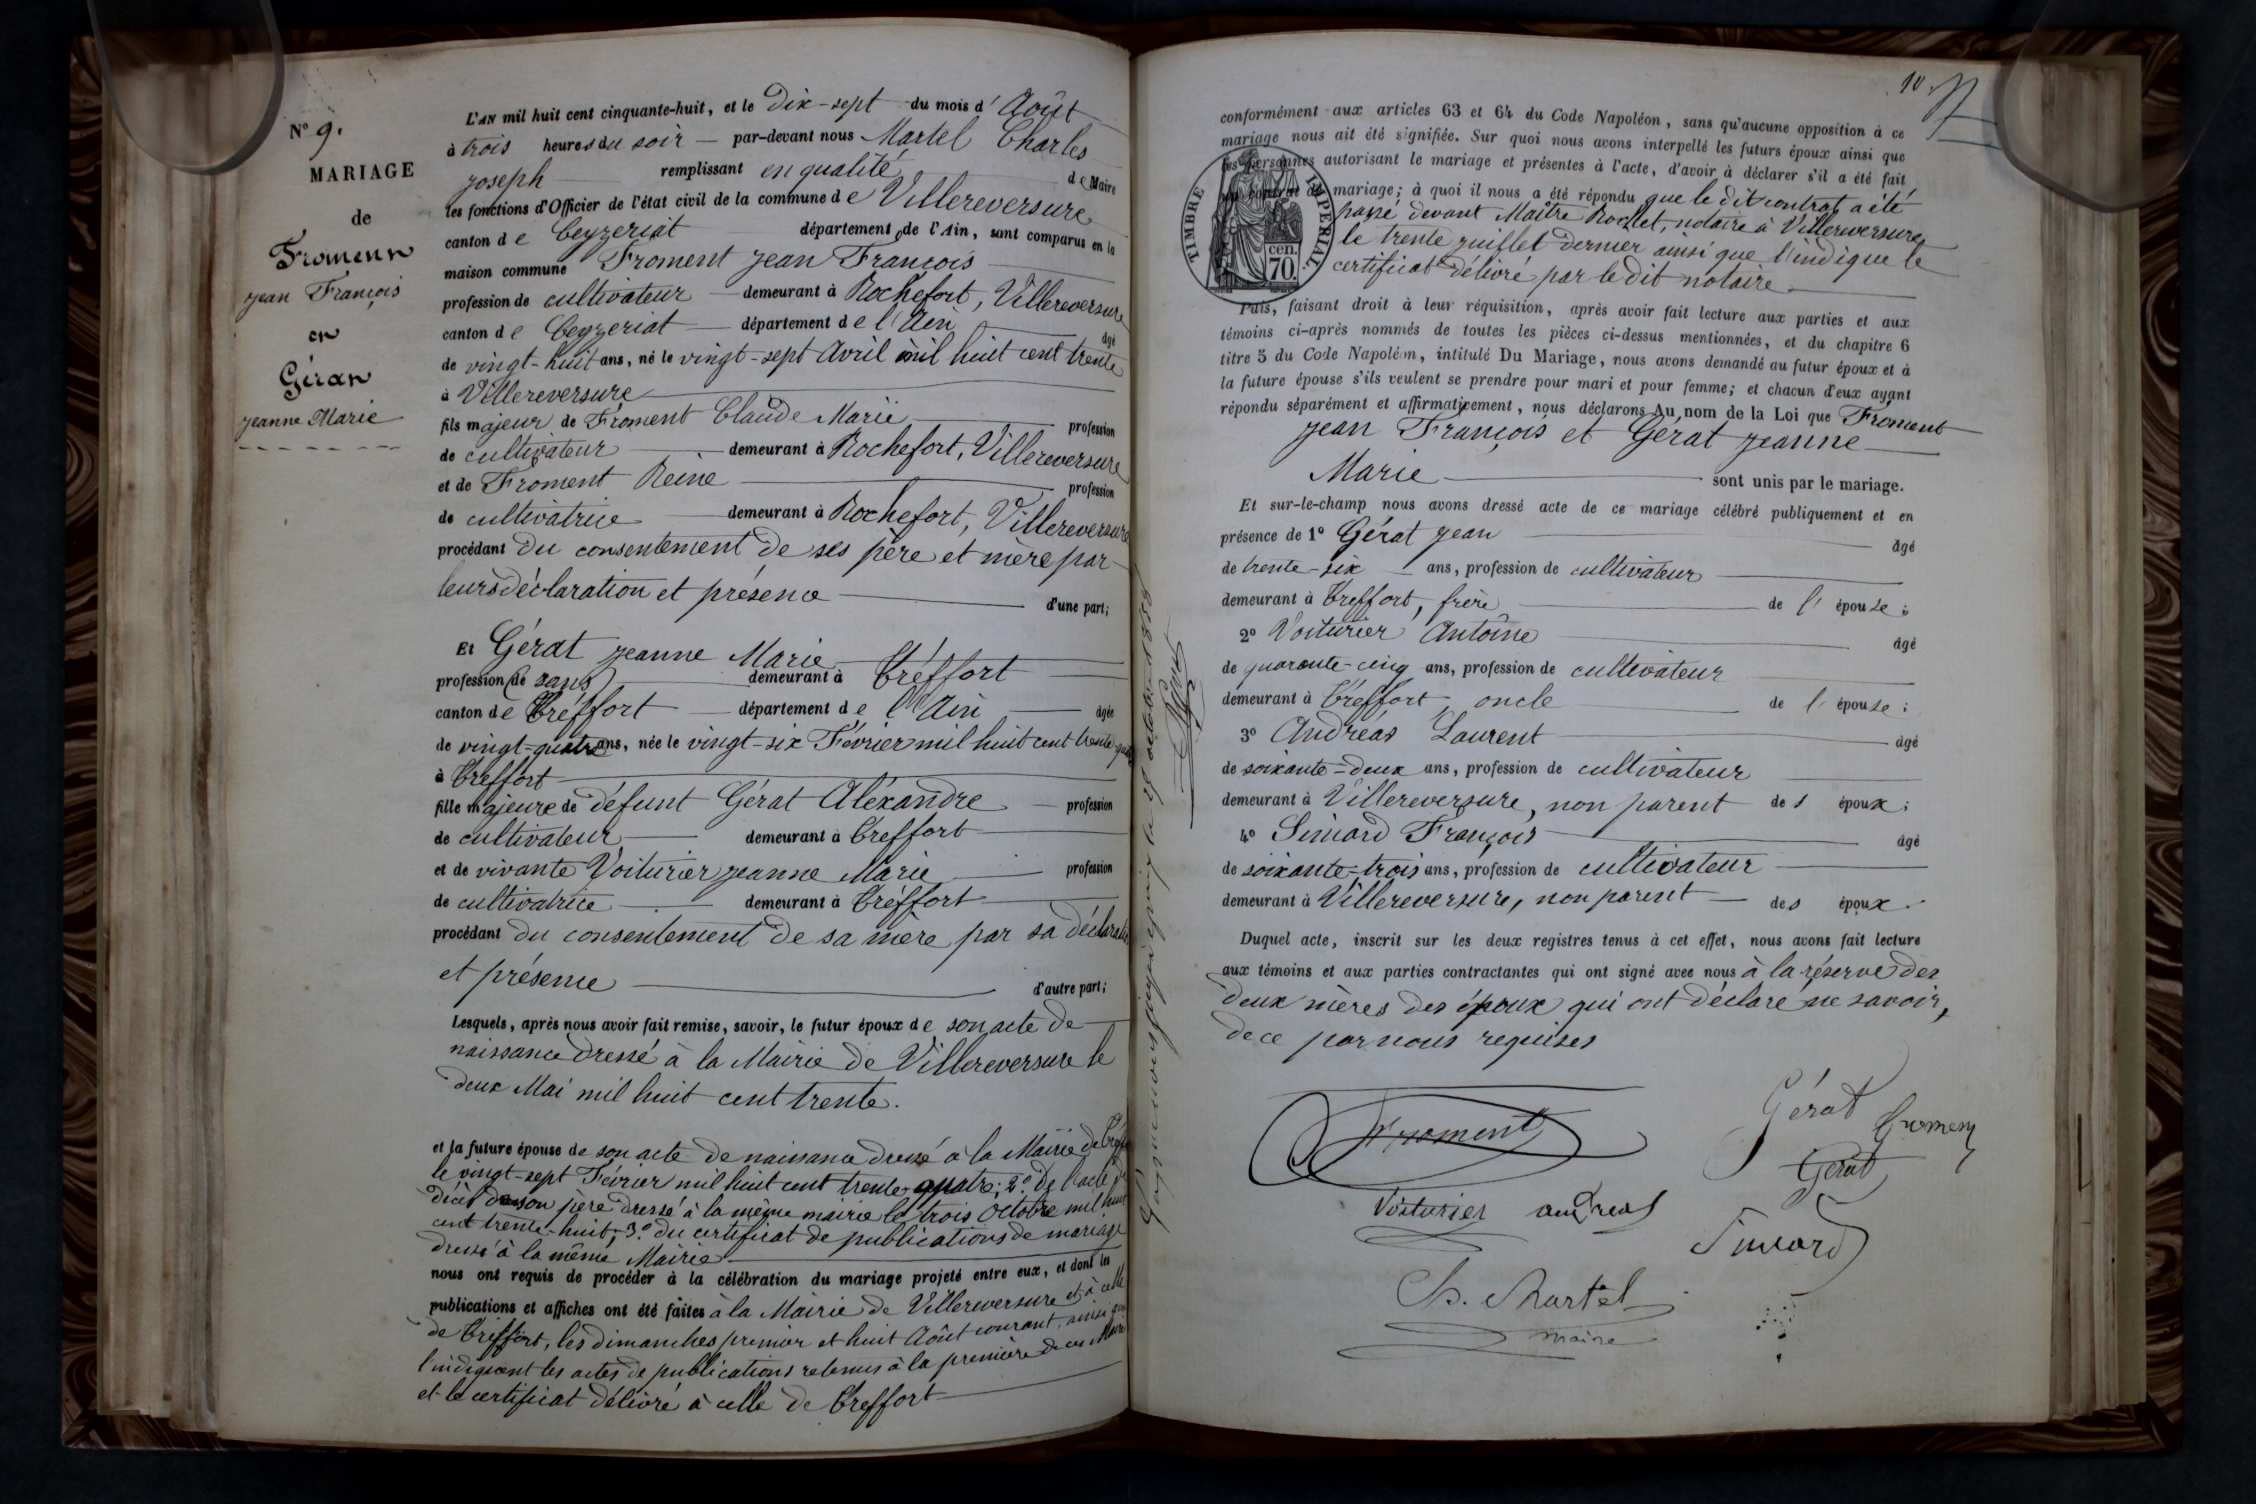 N° 9.
MARIAGE
de
Froment
Jean François
et
Gérat
Jeanne Marie
L'AN mil huit cent cinquante-huit, et le Dix-sept du mois d'Août
à trois heures du soir par-devant nous Martel Charles
Joseph remplissant en qualité de Maire
les fonctions d'Officier de l'état civil de la commune de Villereversure
canton de Ceyzeriat département de l'Ain, sont comparus en la
maison commune Froment Jean François
profession de cultivateur demeurant à Rochefort, Villereversure
canton de Ceyzeriat département de l'Ain âgé
de vingt-huit ans, né le vingt-sept Avril mil huit cent trente
à Villereversure
fils majeur de Froment Claude Marie profession
de cultivateur demeurant à Rochefort, Villereversure
et de Froment Reine profession
de cultivatrice demeurant à Rochefort, Villereversure
procédant du consentement de ses père et mère par
leurs déclaration et présence d'une part;
Et Gérat Jeanne Marie
profession (de sans) demeurant à Tréffort
canton de Tréffort département de l'Ain âgée
de vingt-quatre ans, née le vingt-six Février mil huit cent trente-quatre
à Treffort
fille majeure de défunt Gérat Aléxandre profession
de cultivateur demeurant à Treffort
et de vivante Voiturier Jeanne Marie profession
de cultivatrice demeurant à Tréffort
procédant du consentement de sa mère par sa déclaration
et présence d'autre part;
Lesquels, après nous avoir fait remise, savoir, le futur époux de son acte de
naissance dressé à la Mairie de Villereversure le
deux Mai mil huit cent trente.
et la future épouse de son acte de naissance dressé à la Mairie de Treffort
le vingt-sept Février mil huit cent trente quatre; 2° de l'acte de
décès de son père dressé à la même mairie le trois Octobre mil huit
cent trente-huit; 3° du certificat de publications de mariage
dressé à la même Mairie
nous ont requis de procéder à la célébration du mariage projeté entre eux, et dont les
publications et affiches ont été faites à la Mairie de Villereversure et à celle
de Treffort, les dimanches premier et huit Août courant, ainsi que
l'indiquent les actes de publications retenus à la première de ces Mairies
et le certificat délivré à celle de Treffort
10
conformément aux articles 63 et 64 du Code Napoléon, sans qu'aucune opposition à ce
mariage nous ait été signifiée. Sur quoi nous avons interpellé les futurs époux ainsi que
les personnes autorisant le mariage et présentes à l'acte, d'avoir à déclarer s'il a été fait
un contrat de mariage; à quoi il nous a été répondu que le dit contrat a été
passé devant Maître Rochet, notaire à Villereversure
le trente juillet dernier ainsi que l'indique le
certificat délivré par le dit notaire
TIMBRE IMPERIAL
70 cen.
Puis, faisant droit à leur réquisition, après avoir fait lecture aux parties et aux
témoins ci-après nommés de toutes les pièces ci-dessus mentionnées, et du chapitre 6
titre 5 du Code Napoléon, intitulé Du Mariage, nous avons demandé au futur époux et à
la future épouse s'ils veulent se prendre pour mari et pour femme; et chacun d'eux ayant
répondu séparément et affirmativement, nous déclarons Au nom de la Loi que Froment
Jean François et Gérat Jeanne
Marie sont unis par le mariage.
Et sur-le-champ nous avons dressé acte de ce mariage célébré publiquement et en
présence de 1° Gérat Jean âgé
de trente-six ans, profession de cultivateur
demeurant à Treffort, frère de l'épouse;
2° Voiturier Antoine âgé
de quarante-cinq ans, profession de cultivateur
demeurant à Tréffort, oncle de l'épouse;
3° Andréas Laurent âgé
de soixante-deux ans, profession de cultivateur
demeurant à Villereversure, non parent des époux;
4° Simard François âgé
de soixante-trois ans, profession de cultivateur
demeurant à Villereversure, non parent des époux.
Duquel acte, inscrit sur les deux registres tenus à cet effet, nous avons fait lecture
aux témoins et aux parties contractantes qui ont signé avec nous à la réserve des
deux mères des époux qui ont déclaré ne savoir,
de ce par nous requises
Froment
Gérat
Froment
Gérat
Voiturier andreas
Simard
Ch. Martel
maire